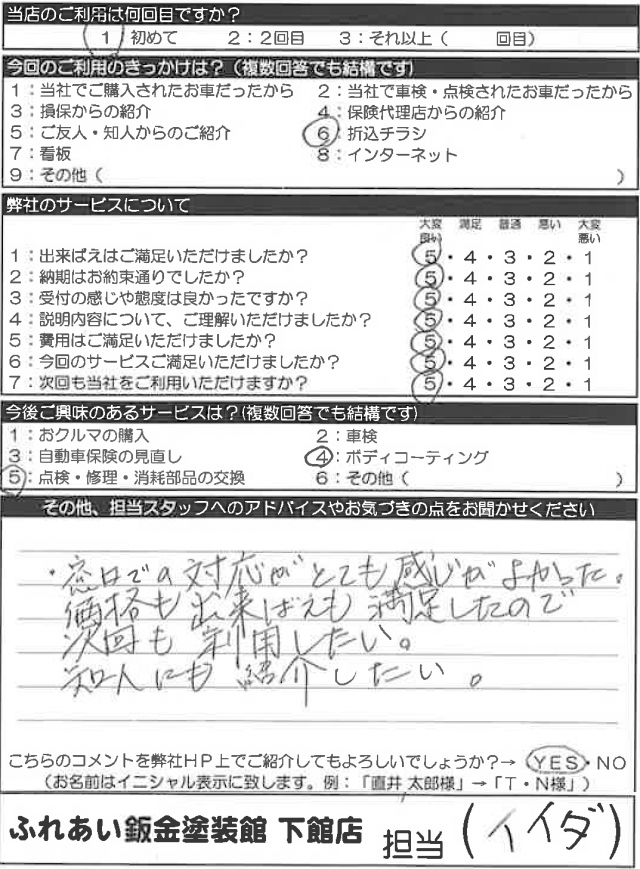 当店のご利用は何回目ですか？
1：初めて 2：2回目 3：それ以上（ 回目）
今回のご利用のきっかけは？（複数回答でも結構です）
1：当社でご購入されたお車だったから 2：当社で車検・点検されたお車だったから
3：損保からの紹介 4：保険代理店からの紹介
5：ご友人・知人からのご紹介 6：折込チラシ
7：看板 8：インターネット
9：その他（ ）
弊社のサービスについて
大変良い 満足 普通 悪い 大変悪い
1：出来ばえはご満足いただけましたか？ 5・4・3・2・1
2：納期はお約束通りでしたか？ 5・4・3・2・1
3：受付の感じや態度は良かったですか？ 5・4・3・2・1
4：説明内容について、ご理解いただけましたか？ 5・4・3・2・1
5：費用はご満足いただけましたか？ 5・4・3・2・1
6：今回のサービスご満足いただけましたか？ 5・4・3・2・1
7：次回も当社をご利用いただけますか？ 5・4・3・2・1
今後ご興味のあるサービスは？（複数回答でも結構です）
1：おクルマの購入 2：車検
3：自動車保険の見直し 4：ボディコーティング
5：点検・修理・消耗部品の交換 6：その他（ ）
その他、担当スタッフへのアドバイスやお気づきの点をお聞かせください
・窓口での対応がとても感じがよかった。
価格も出来ばえも満足したので
次回も利用したい。
知人にも紹介したい。
こちらのコメントを弊社HP上でご紹介してもよろしいでしょうか？→ YES・NO
（お名前はイニシャル表示に致します。例：「直井 太郎様」→「T・N様」）
ふれあい鈑金塗装館 下館店 担当（イイダ）